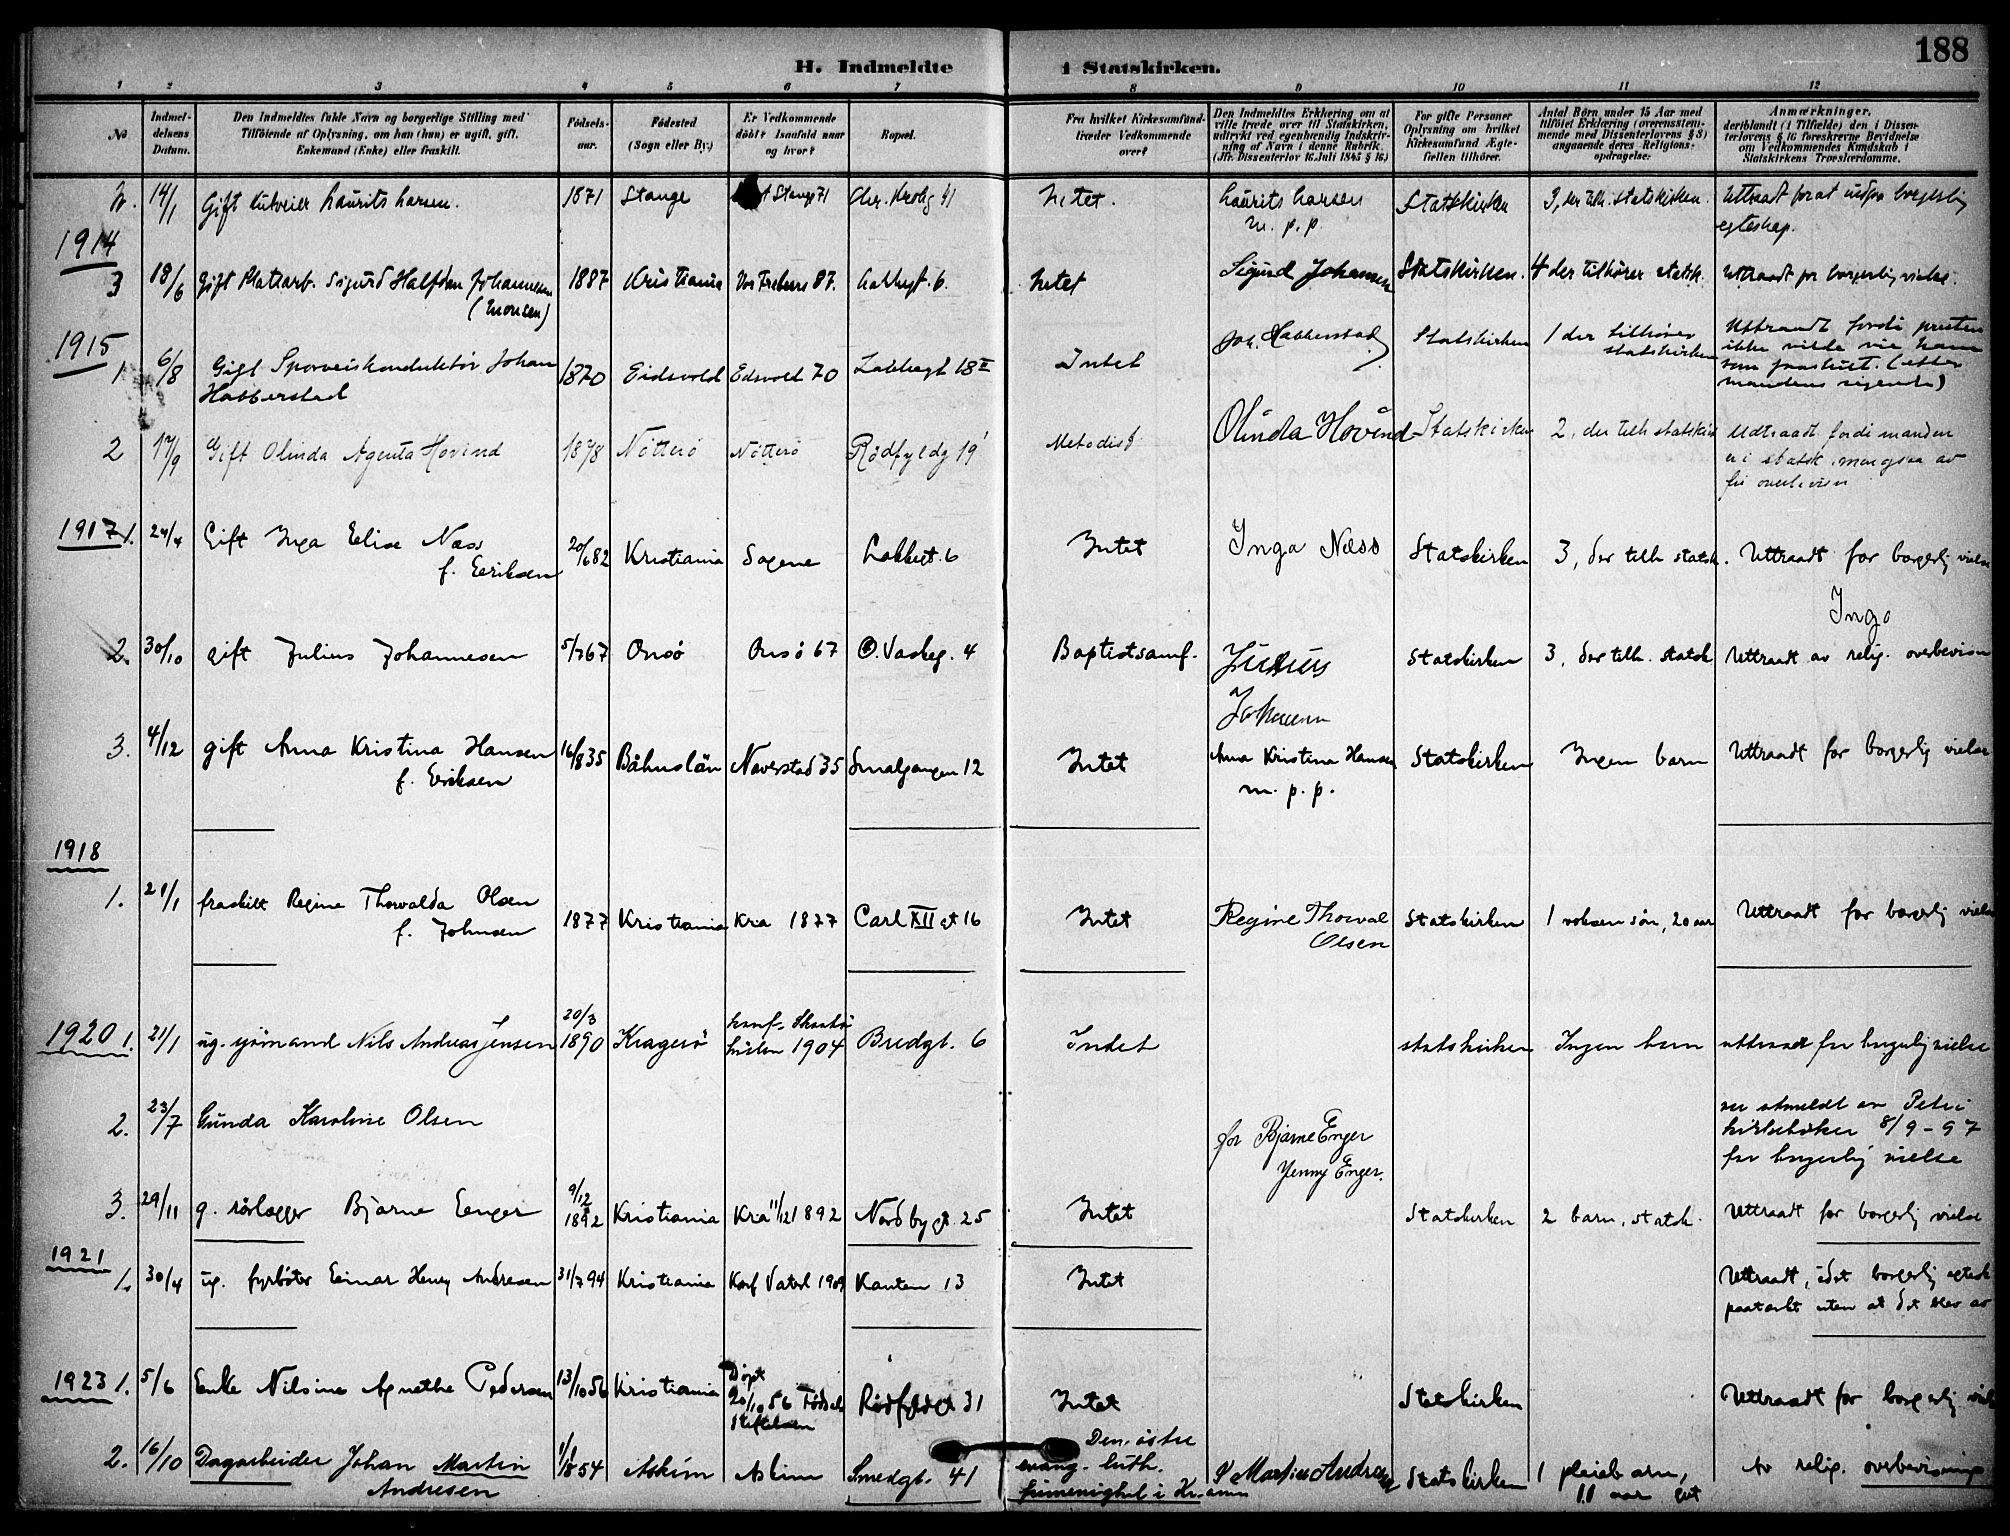 188
H. Indmeldte i Statskirken.
1 2 3 4 5 6 7 8 9 10 11 12
No
Indmel-
delsens
Datum.
Den Indmeldtes fulde Navn og borgerlige Stilling med
Tilföiende af Oplysning, om han (hun) er ugift, gift,
Enkemand (Enke) eller fraskilt.
Födsels-
aar.
Födested
(Sogn eller By.)
Er Vedkommende
döbt? Isaafald naar
og hvor?
Bopæl.
Fra hvilket Kirkesamfund
træder Vedkommende
over?
Den Indmeldtes Erklæring om at
ville træde over til Statskirken,
udtrykt ved egenhændig Indskriv-
ning af Navn i denne Rubrik.
(Jfr. Dissenterlov 16 Juli 1845 § 16)
For gifte Personer
Oplysning om hvilket
Kirkesamfund Ægte-
fællen tilhörer.
Antal Börn under 15 Aar med
tilföiet Erklæring (overensstem-
mende med Dissenterlovens § 8)
angaaende deres Religions-
opdragelse.
Anmærkninger,
deriblandt (i Tilfælde) den i Dissen-
terlovens § 16 foreskrevne Bevidnelse
om Vedkommendes Kundskab i
Statskirkens Troeslærdomme.
2. 14/1 Gift Laurits Larsen. 1871 Stange Stange 71 Chr. Krohg 41 Intet. Laurits Larsen Statskirken 3, der tilh. statskirken. Uttraadt for at indgaa borgerlig
m. p. p. egteskap.
1914
3 18/6 Gift Platearb. Sigurd Halfdan Johannesen 1887 Kristiania Vor Frelsers 87. Lakkegt. 6. Intet Sigurd Johansen Statskirken. 4 der tilhører statsk. Uttraadt for borgerlig vielse.
(Monsen)
1915
1 6/8 Gift Sporveiskonduktör Johan 1870 Eidsvold Edsvold 70 Lakkegt 18 II Intet Joh. Habberstad Statskirken 1 der tilhører Uttraadt fordi presten
Habberstad statskirken ikke vilde vie ham
som fraskilt. (efter
mandens sigende)
2 17/9 Gift Olinda Agenta Hovind 1878 Nötterö Nötterö Rödfyldg 19 Metodist Olinda Hovind Statskirken 2, der tilh statskirk Udtraadt fordi manden
er i statsk. men ogsaa av
fri overbevisn
1917 1. 24/4 Gift Inga Elise Næss 20/6 82 Kristiania Sagene Lakkegt. 6 Intet Inga Næss Statskirken 3, der tilh statsk. Uttraadt for borgerlig vielse
f. Eriksen
Inga
2. 30/10 gift Julius Johannesen 5/7 67 Onsö Onsö 67 Ø. Vaskeg. 4 Baptistsamf. Julius Statskirken 3, der tilh. statsk Uttraadt av relig. overbevisn
Johannsen
3. 4/12 gift Anna Kristina Hansen 16/8 35 Båhuslän Naverstad 35 Smalgangen 12 Intet Anna Kristina Hansen Statskirken Ingen barn Uttraadt for borgerlig vielse
f. Eriksen m. p. p.
1918
1. 21/1 fraskilt Regine Thorvalda Olsen 1877 Kristiania Kra 1877 Carl XII gt 16 Intet Regine Thorval Statskirken 1 voksen sön, 20 aar Uttraadt for borgerlig vielse
f. Johnsen Olsen
1920 1. 21/1 ug. sjömand Nils Andreas Jensen 20/3 1890 Kragerö konf. Skaatö kirken 1904 Bredgt. 6 Intet statskirken Ingen barn uttraadt for borgerlig vielse
2. 23/7 Gunda Karoline Olsen utmeldt av Petri
kirkebøker 8/9-97
for borgerlig vielse
for Bjarne Enger
Jenny Enger.
3. 29/11 g. rörlægger Bjarne Enger 9/12 1892 Kristiania Kra 11/12 1892 Nordbygt 25 Intet Statskirken 2 barn, statsk. Uttraadt for borgerlig vielse
1921
1. 30/4 ug. fyrböter Einar Henry Andresen 31/7 94 Kristiania Konf Vaterl 1909 Kanten 13 Intet Uttraadt, idet borgerlig egtesk
paatænkt uten at det blev av
1923 1. 5/6 Enke Nilsine Agnethe Pedersen 13/10 56 Kristiania Döpt Intet Statskirken Uttraadt for borgerlig viel
20/10 56 Födsels Rödfyldgt 31
stiftelsen
2. 16/10 Dagarbeider Johan Martin 1/8 54 Askim Askim Smedgt. 41 Den østre J Martin Andresen Statskirken 1 pleiebarn, Av relig. overbevisning
Andresen evang. luth. 11 aar gut
frimenighet i Kr.ania